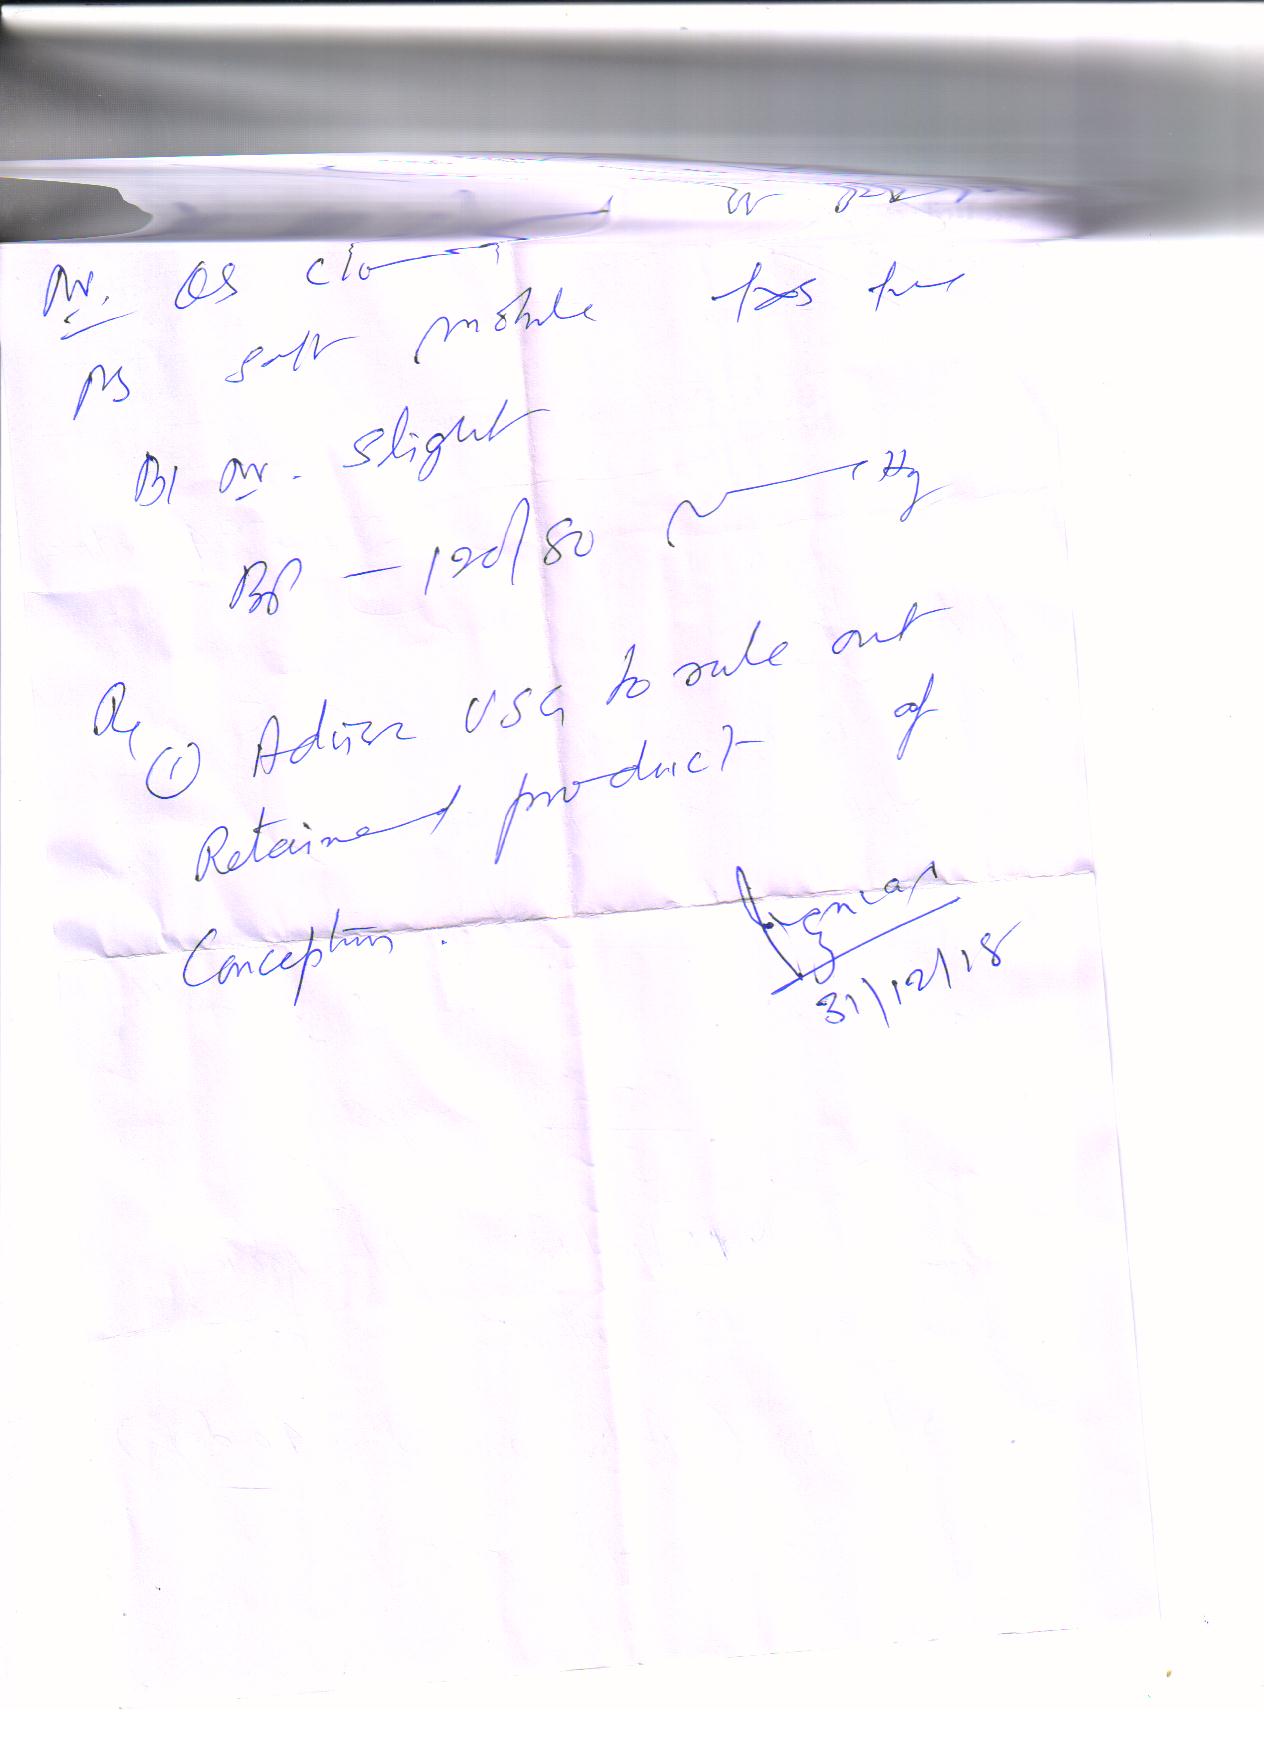 P/V. OS clo
P/S soft mobile fxs free
B/ P/V. Slight
BP — 120/80 m Hg
Rx
① Advice USG to rule out
Retained product of
Conception.
31/12/18